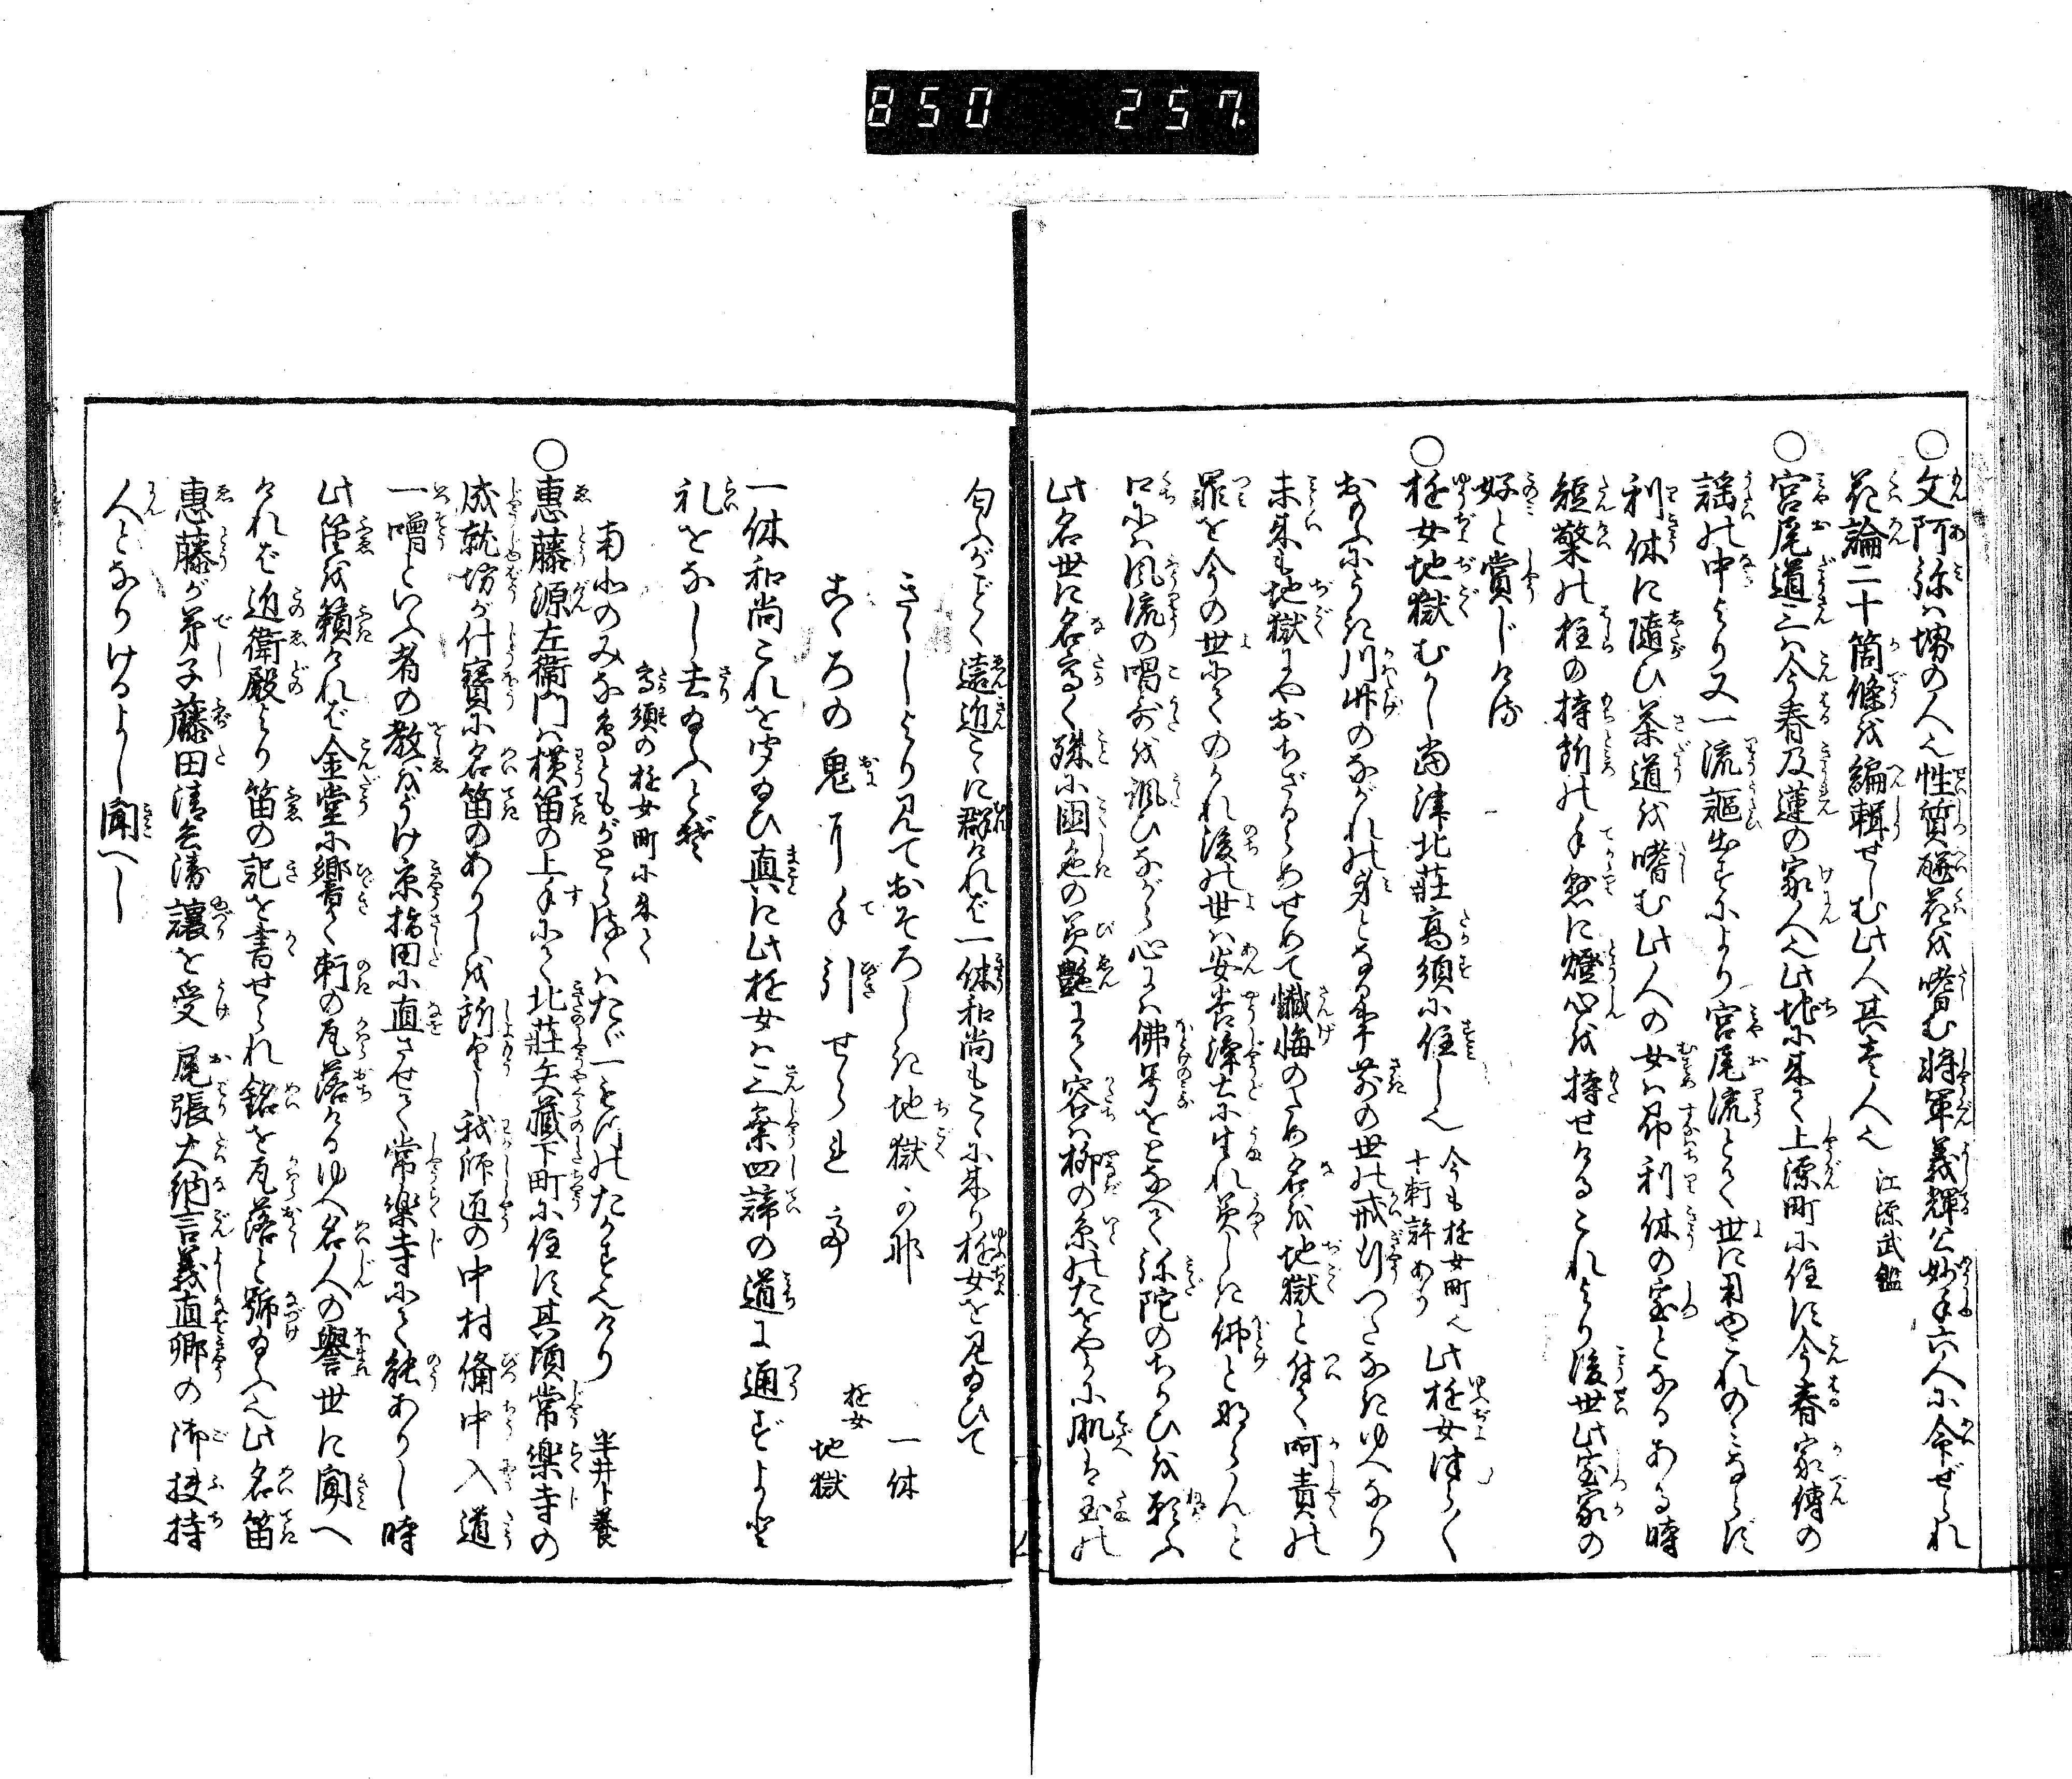 850 257.
○文阿弥ハ堺の人也性質瓶花を嗜む将軍義輝公妙手六人に令ぜられ
花論二十箇條を編輯せしむ此人其壱人也 江源武鑑
○宮尾道三ハ今春及蓮の家人也此地に来て上源町に住す今春家傳の
謡の中より又一流謳出すにより宮尾流とて世に用ゆこれのミならず
利休に随ひ茶道を嗜む此人の女ハ即利休の室となるある時
短檠の柱の持所の手懸に燈心を持せけるこれより後世此室家の
好と賞じける
○遊女地獄むかし当津北荘高須に住し也 今も遊女町也 十軒許あり 此遊女つらく
おもふにうき川竹のながれの身となる事前の世の戒行つたなきゆへなり
未来も地獄にやおちざらめせめて懺悔のため名を地獄と付て呵責の
罪を今の世にてのがれ後の世ハ安養浄土に生れ美しき佛と成らんと
口にハ風流の唱哥を諷ひながら心にハ佛号をとなへて弥陀のちかひを願ふ
此名世に名高く殊に国色の美艶にて容ハ柳の糸のたをやかに肌は玉の
匂ふがごく遠近こゝに群ければ一休和尚もこゝに来り遊女を見給ひて
きゝしより見ておそろしき地獄かな 一休
こゝろの鬼が手引せられて 遊女 地獄
一休和尚これを聞給ひ真に此遊女は三乗四諦の道に通ずよと
礼をなし去給ふとぞ
高須の遊女町に来て
南北のみな鳥ともがとらるゝハたゞ一もじのたかすなりけり 半井卜養
○惠藤源左衛門ハ横笛の上手にて北荘矢蔵下町に住す其頃常樂寺の
成就坊が什寶に名笛のありしを所望し我師匠の中村備中入道
一噌といふ者の教をうけ京指田に直させて常樂寺にて能ありし時
此笛を籟ければ金堂に響て軒の瓦落けるゆへ名人の譽世に聞へ
ければ近衛殿より笛の記を書せられ銘を瓦落と號給ふ也此名笛
惠藤が弟子藤田清兵衛譲を受 尾張大納言義直卿の御扶持
人となりけるよし聞へし